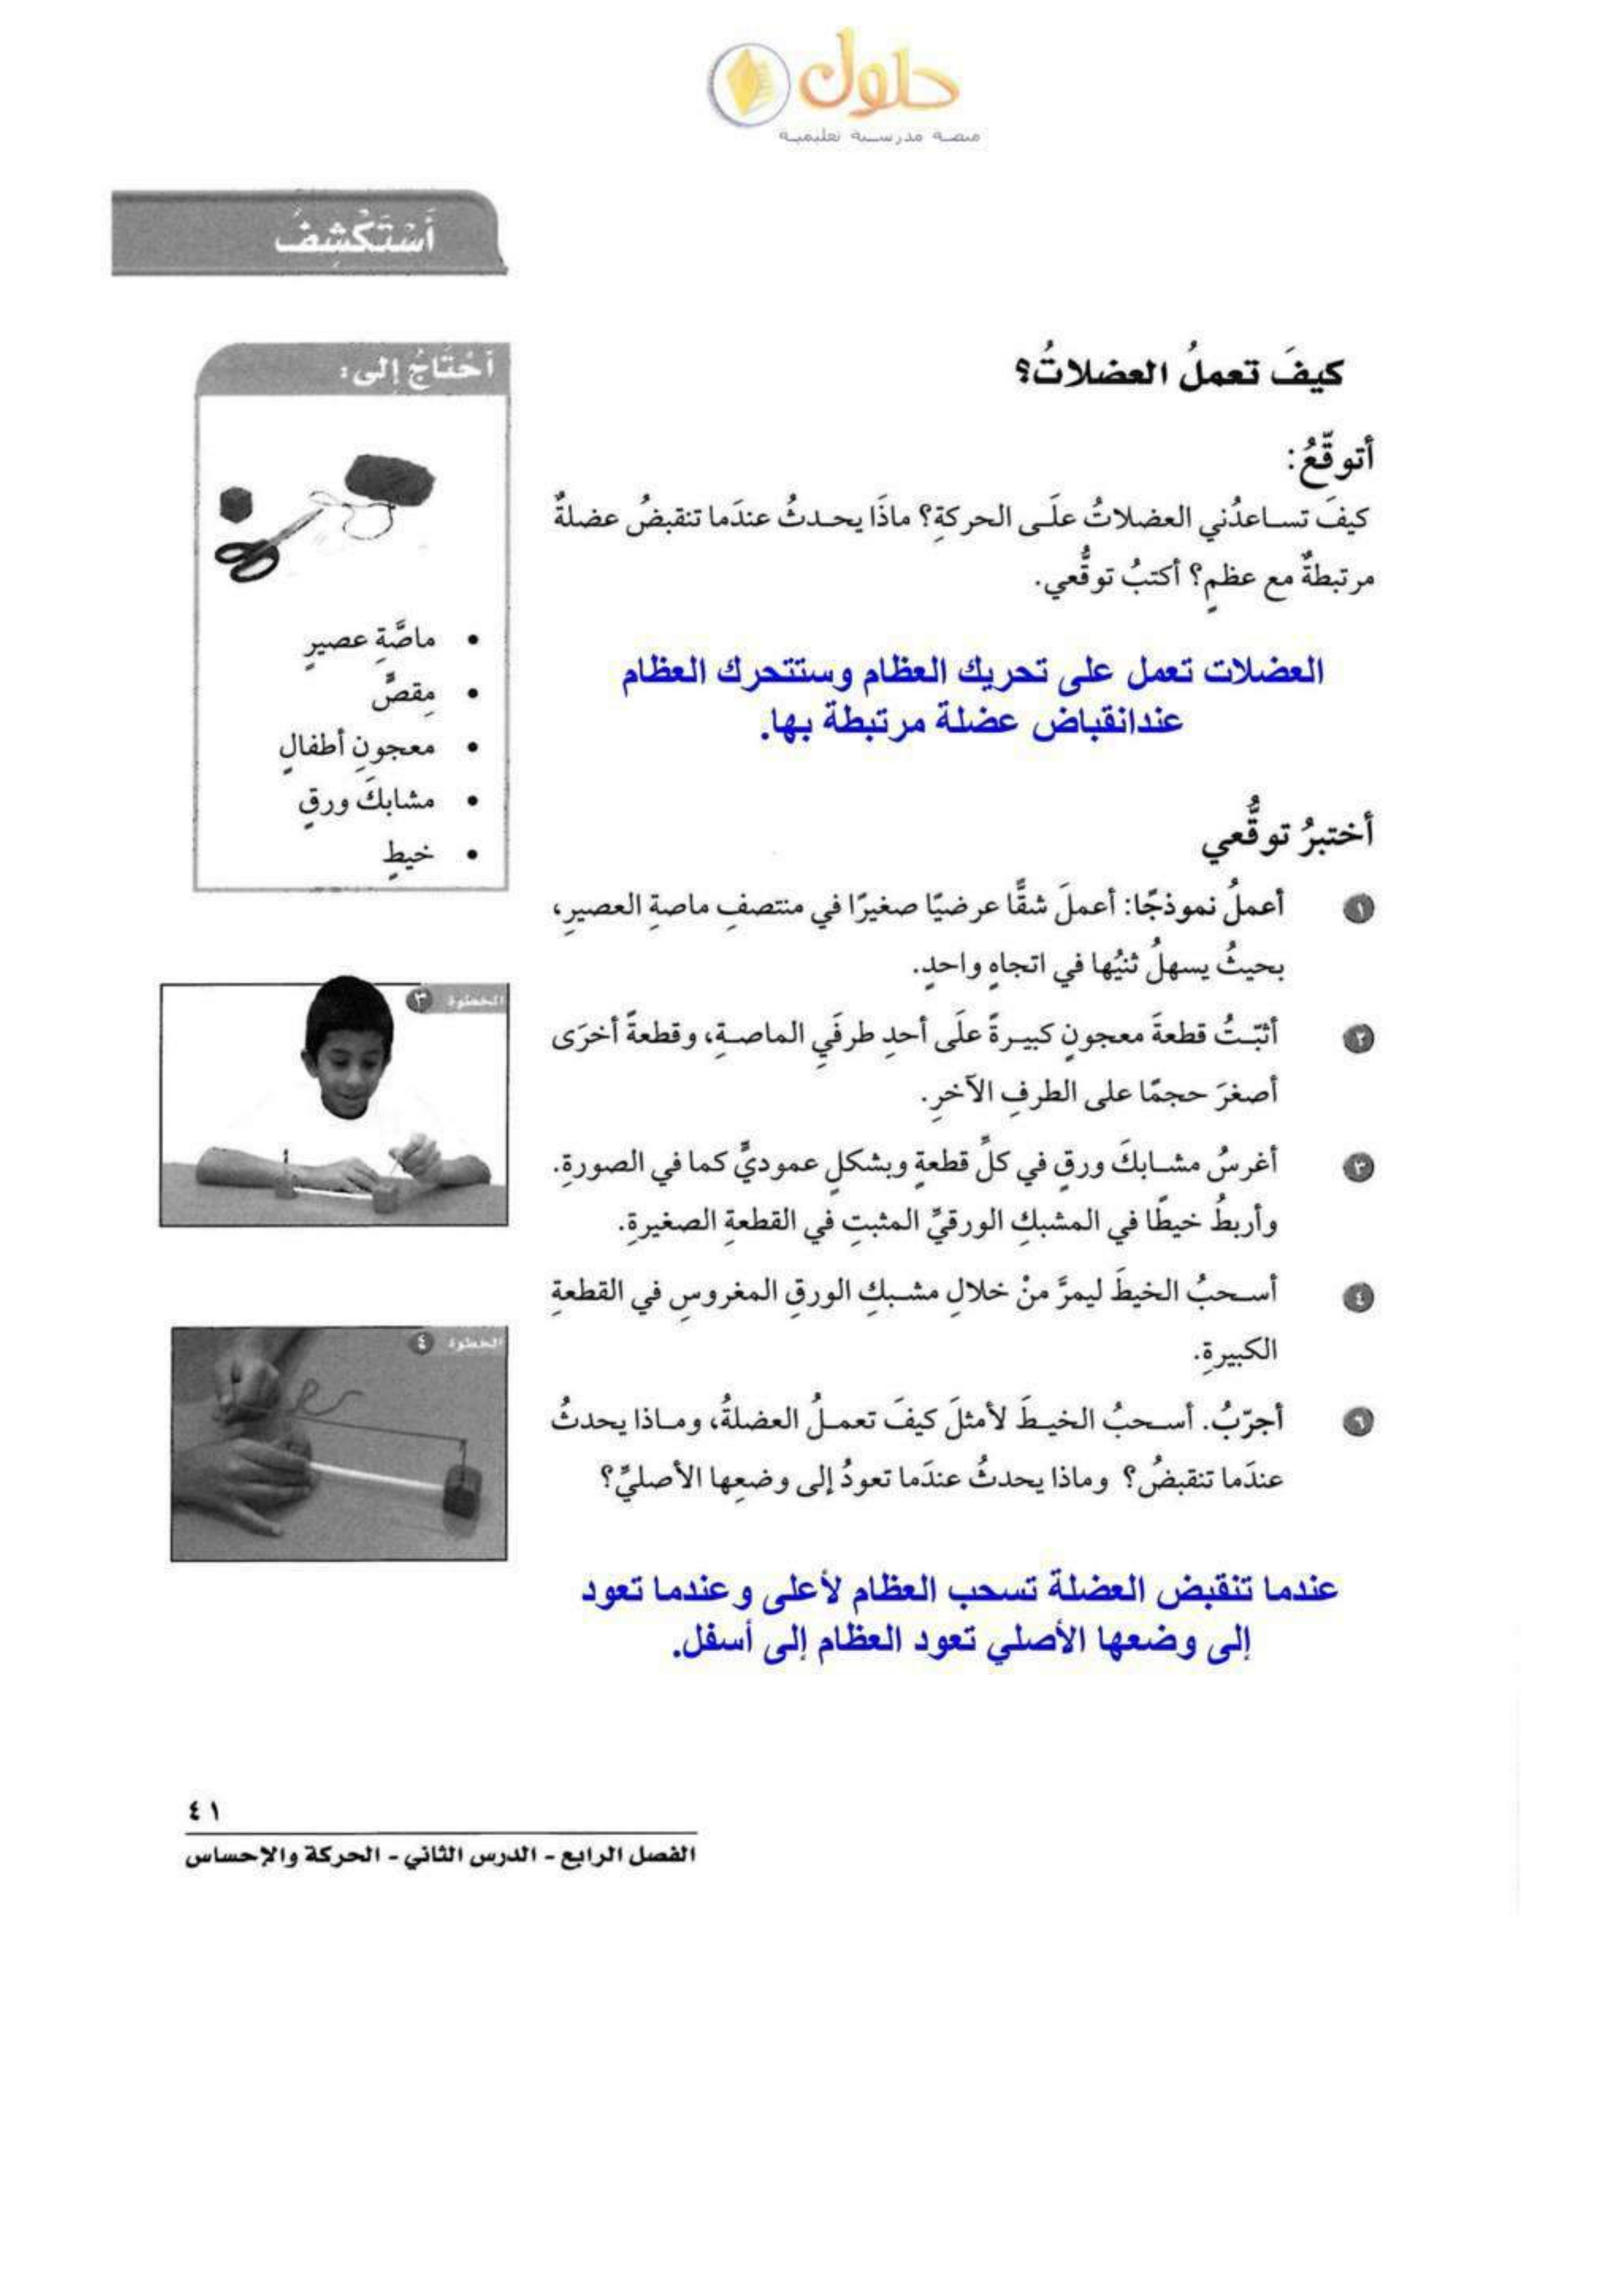 حلول
منصة مدرسية تعليمية
أَسْتَكْشِفُ
كيفَ تعملُ العضلاتُ؟
أتوقّعُ:
كيفَ تساعدُني العضلاتُ علَى الحركةِ؟ ماذَا يحدثُ عندَما تنقبضُ عضلةٌ
مرتبطةٌ مع عظمٍ؟ أكتبُ توقُّعي.
العضلات تعمل على تحريك العظام وستتحرك العظام
عندانقباض عضلة مرتبطة بها.
أختبرُ توقُّعي
١ أعملُ نموذجًا: أعملَ شقًّا عرضيًا صغيرًا في منتصفِ ماصةِ العصيرِ،
بحيثُ يسهلُ ثنيُها في اتجاهٍ واحدٍ.
٢ أثبّتُ قطعةَ معجونٍ كبيرةً علَى أحدِ طرفَيِ الماصةِ، وقطعةً أخرَى
أصغرَ حجمًا على الطرفِ الآخرِ.
٣ أغرسُ مشابكَ ورقٍ في كلِّ قطعةٍ وبشكلٍ عموديٍّ كما في الصورةِ.
وأربطُ خيطًا في المشبكِ الورقيِّ المثبتِ في القطعةِ الصغيرةِ.
٤ أسحبُ الخيطَ ليمرَّ منْ خلالِ مشبكِ الورقِ المغروسِ في القطعةِ
الكبيرةِ.
٦ أجرّبُ. أسحبُ الخيطَ لأمثلَ كيفَ تعملُ العضلةُ، وماذا يحدثُ
عندَما تنقبضُ؟ وماذا يحدثُ عندَما تعودُ إلى وضعِها الأصليِّ؟
عندما تنقبض العضلة تسحب العظام لأعلى وعندما تعود
إلى وضعها الأصلي تعود العظام إلى أسفل.
أحْتَاجُ إلى:
• ماصَّةِ عصيرٍ
• مِقصٍّ
• معجونِ أطفالٍ
• مشابكَ ورقٍ
• خيطٍ
الخطوة ٣
الخطوة ٤
٤١
الفصل الرابع - الدرس الثاني - الحركة والإحساس